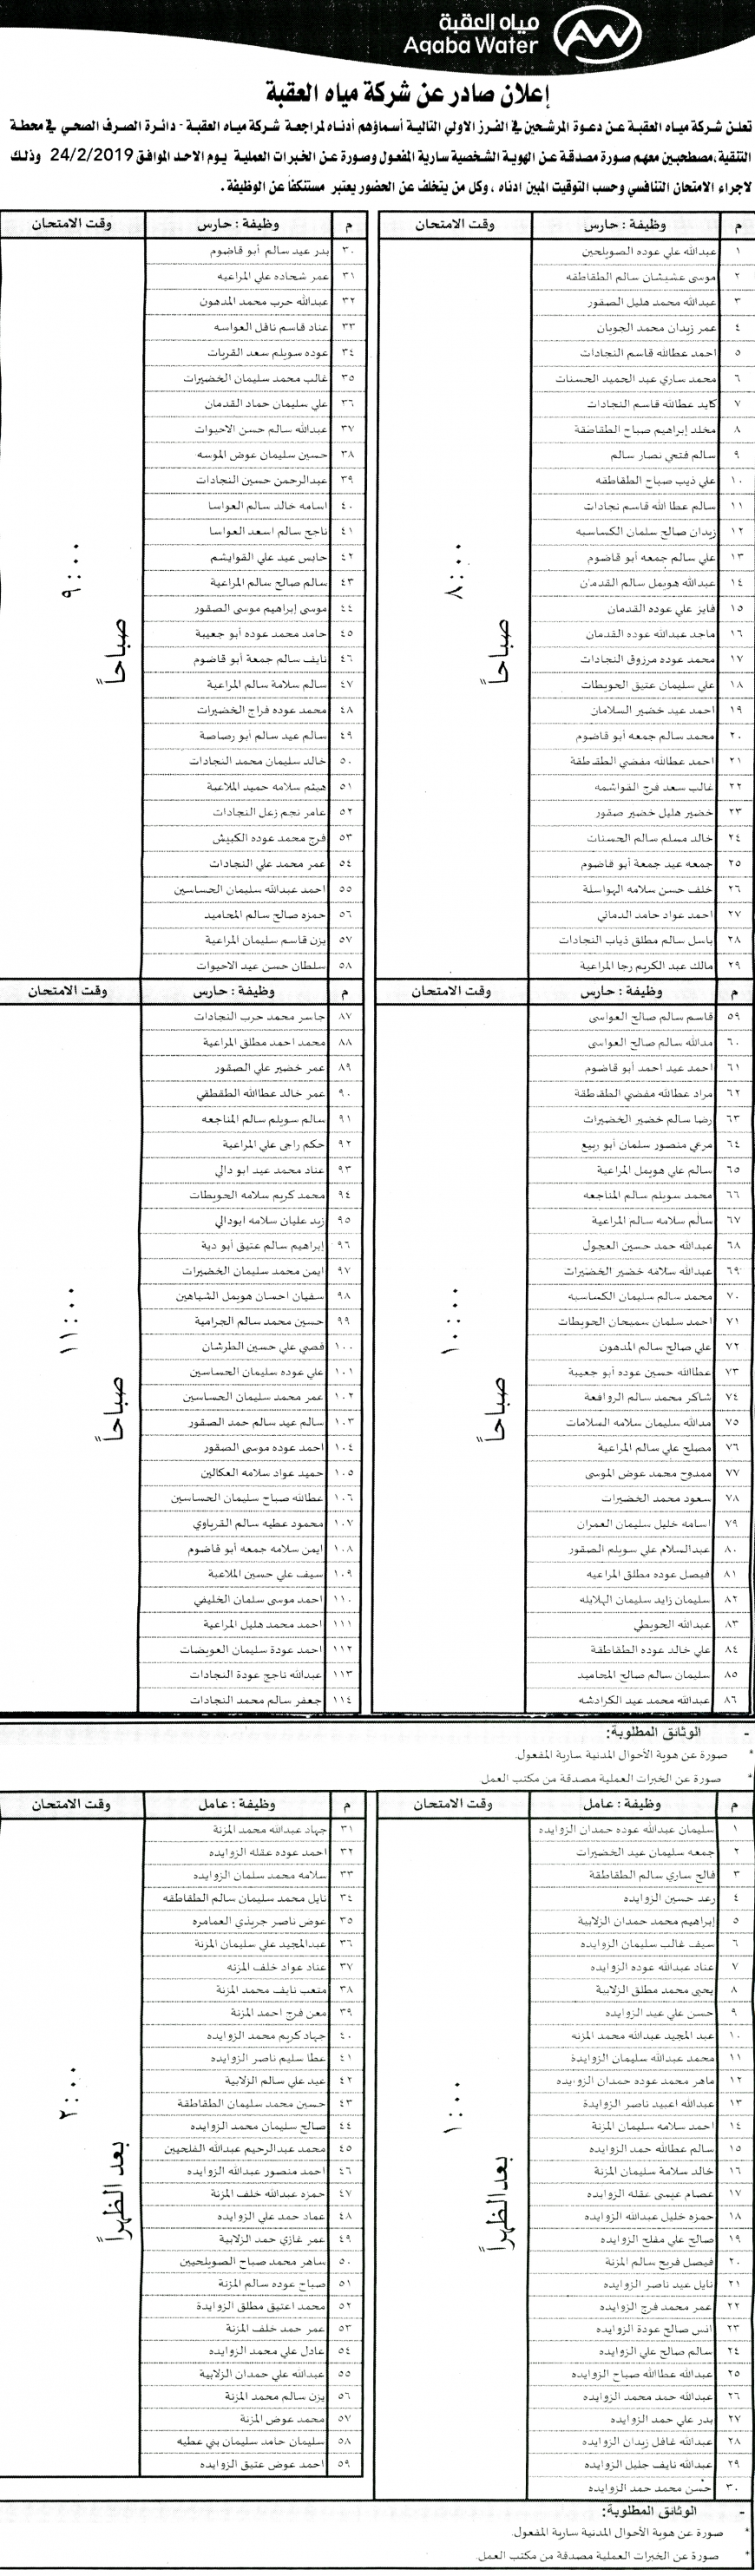 مياه العقبة
Aqaba Water
إعلان صادر عن شركة مياه العقبة
تعلن شركة مياه العقبة عن دعوة المرشحين في الفرز الاولي التالية أسماؤهم أدناه لمراجعة شركة مياه العقبة - دائرة الصرف الصحي في محطة
التنقية، مصطحبين معهم صورة مصدقة عن الهوية الشخصية سارية المفعول وصورة عن الخبرات العملية يوم الاحد الموافق 24/2/2019 وذلك
لاجراء الامتحان التنافسي وحسب التوقيت المبين ادناه ، وكل من يتخلف عن الحضور يعتبر مستنكفاً عن الوظيفة .
م وظيفة : حارس وقت الامتحان
١ عبدالله علي عوده الصويلحين
٢ موسى عشيشان سالم الطقاطقه
٣ عبدالله محمد هليل الصقور
٤ عمر زيدان محمد الجوبان
٥ احمد عطالله قاسم النجادات
٦ محمد ساري عبد الحميد الحسنات
٧ كايد عطالله قاسم النجادات
٨ مخلد إبراهيم صباح الطقاطقة
٩ سالم فتحي نصار سالم
١٠ علي ذيب صباح الطقاطقه
١١ سالم عطا الله قاسم نجادات
١٢ زيدان صالح سلمان الكساسبه
١٣ علي سالم جمعه أبو قاضوم
١٤ عبدالله هويمل سالم القدمان
١٥ فايز علي عوده القدمان
١٦ ماجد عبدالله عوده القدمان
١٧ محمد عوده مرزوق النجادات
١٨ علي سليمان عتيق الحويطات
١٩ احمد عيد خضير السلامان
٢٠ محمد سالم جمعه أبو قاضوم
٢١ احمد عطالله مفضي الطقطقة
٢٢ غالب سعد فرج القواشمه
٢٣ خضير هليل خضير صقور
٢٤ خالد مسلم سالم الحسنات
٢٥ جمعه عيد جمعة أبو قاضوم
٢٦ خلف حسن سلامه الهواسلة
٢٧ احمد عواد حامد الدماني
٢٨ باسل سالم مطلق ذياب النجادات
٢٩ مالك عبد الكريم رجا المراعية
٨:٠٠ صباحاً
م وظيفة : حارس وقت الامتحان
٣٠ بدر عيد سالم أبو قاضوم
٣١ عمر شحاده علي المراعيه
٣٢ عبدالله حرب محمد المدهون
٣٣ عناد قاسم نافل العواسه
٣٤ عوده سويلم سعد القريات
٣٥ غالب محمد سليمان الخضيرات
٣٦ علي سليمان حماد القدمان
٣٧ عبدالله سالم حسن الاحيوات
٣٨ حسين سليمان عوض الموسه
٣٩ عبدالرحمن حسين النجادات
٤٠ اسامه خالد سالم العواسا
٤١ ناجح سالم اسعد العواسا
٤٢ حابس عيد علي القوايشم
٤٣ سالم صالح سالم المراعية
٤٤ موسى إبراهيم موسى الصقور
٤٥ حامد محمد عوده أبو جعيبة
٤٦ نايف سالم جمعة أبو قاضوم
٤٧ سالم سلامة سالم المراعية
٤٨ محمد عوده فراج الخضيرات
٤٩ سالم عيد سالم أبو رصاصة
٥٠ خالد سليمان محمد النجادات
٥١ هيثم سلامه حميد الملاعبة
٥٢ عامر نجم زعل النجادات
٥٣ فرج محمد عوده الكبيش
٥٤ عمر محمد علي النجادات
٥٥ احمد عبدالله سليمان الحساسين
٥٦ حمزه صالح سالم المحاميد
٥٧ يزن قاسم سليمان المراعية
٥٨ سلطان حسن عيد الاحيوات
٩:٠٠ صباحاً
م وظيفة : حارس وقت الامتحان
٥٩ قاسم سالم صالح العواسى
٦٠ مدالله سالم صالح العواسى
٦١ احمد عيد احمد أبو قاضوم
٦٢ مراد عطالله مفضي الطقطقة
٦٣ رضا سالم خضير الخضيرات
٦٤ مرعي منصور سلمان أبو ربيع
٦٥ سالم علي هويمل المراعية
٦٦ محمد سويلم سالم المناجعه
٦٧ سالم سلامه سالم المراعية
٦٨ عبدالله حمد حسين العجول
٦٩ عبدالله سلامه خضير الخضيرات
٧٠ محمد سالم سليمان الكساسبه
٧١ احمد سلمان سميحان الحويطات
٧٢ علي صالح سالم المدهون
٧٣ عطاالله حسين عوده أبو جعيبة
٧٤ شاكر محمد سالم الروافعة
٧٥ مدالله سليمان سلامه السلامات
٧٦ مصلح علي سالم المراعية
٧٧ ممدوح محمد عوض الموسى
٧٨ سعود محمد الخضيرات
٧٩ اسامه خليل سليمان العمران
٨٠ عبدالسلام علي سويلم الصقور
٨١ فيصل عوده مطلق المراعيه
٨٢ سليمان زايد سليمان الهلايله
٨٣ عبدالله الحويطي
٨٤ علي خالد عوده الطقاطقة
٨٥ سليمان سالم صالح المحاميد
٨٦ عبدالله محمد عيد الكرادشه
١٠:٠٠ صباحاً
م وظيفة : حارس وقت الامتحان
٨٧ جاسر محمد حرب النجادات
٨٨ محمد احمد مطلق المراعية
٨٩ عمر خضير علي الصقور
٩٠ عمر خالد عطاالله الطقطقي
٩١ سالم سويلم سالم المناجعه
٩٢ حكم راجى علي المراعية
٩٣ عناد محمد عيد ابو دالي
٩٤ محمد كريم سلامه الحويطات
٩٥ زيد عليان سلامه ابودالي
٩٦ إبراهيم سالم عتيق أبو دية
٩٧ ايمن محمد سليمان الخضيرات
٩٨ سفيان احسان هويمل الشياهين
٩٩ حسين محمد سالم الجرامية
١٠٠ قصي علي حسين الطرشان
١٠١ علي عوده سليمان الحساسين
١٠٢ عمر محمد سليمان الحساسين
١٠٣ سالم عيد سالم حمد الصقور
١٠٤ احمد عوده موسى الصقور
١٠٥ حميد عواد سلامه العكالين
١٠٦ عطالله صباح سليمان الحساسين
١٠٧ محمود عطيه سالم القرباوي
١٠٨ ايمن سلامه جمعه أبو قاضوم
١٠٩ سيف علي حسين الملاعبة
١١٠ احمد موسى سلمان الخليفي
١١١ احمد محمد هليل المراعية
١١٢ احمد عودة سليمان العويضات
١١٣ عبدالله ناجح عودة النجادات
١١٤ جعفر سالم محمد النجادات
١١:٠٠ صباحاً
- الوثائق المطلوبة:
* صورة عن هوية الأحوال المدنية سارية المفعول.
* صورة عن الخبرات العملية مصدقة من مكتب العمل
م وظيفة : عامل وقت الامتحان
١ سليمان عبدالله عوده حمدان الزوايده
٢ جمعه سليمان عيد الخضيرات
٣ فالح ساري سالم الطقاطقة
٤ رعد حسين الزوايده
٥ إبراهيم محمد حمدان الزلابية
٦ سيف غالب سليمان الزوايده
٧ عناد عبدالله عوده الزوايده
٨ يحيى محمد مطلق الزلابية
٩ حسن علي عيد الزوايده
١٠ عبد المجيد عبدالله محمد المزنه
١١ محمد عبدالله سليمان الزوايدة
١٢ ماهر محمد عوده حمدان الزوايده
١٣ عبدالله اعبيد ناصر الزوايدة
١٤ احمد سلامه سليمان المزنة
١٥ سالم عطالله حمد الزوايده
١٦ خالد سلامة سليمان المزنة
١٧ عصام عيسى عقله الزوايده
١٨ حمزه خليل عبدالله الزوايده
١٩ صالح علي مفلح الزوايده
٢٠ فيصل فريح سالم المزنة
٢١ نايل عيد ناصر الزوايده
٢٢ عمر محمد فرج الزوايده
٢٣ انس صالح عودة الزوايده
٢٤ سالم صالح علي الزوايده
٢٥ عبدالله عطاالله صباح الزوايده
٢٦ عبدالله حمد محمد الزوايده
٢٧ بدر علي حمد الزوايده
٢٨ عبدالله غافل زيدان الزوايده
٢٩ عبدالله نايف جليل الزوايده
٣٠ حسن محمد حمد الزوايده
١:٠٠ بعد الظهراً
م وظيفة : عامل وقت الامتحان
٣١ جهاد عبدالله محمد المزنة
٣٢ احمد عوده عقله الزوايده
٣٣ سلامه محمد سلمان الزوايده
٣٤ نايل محمد سليمان سالم الطقاطقه
٣٥ عوض ناصر جريذي العمامره
٣٦ عبدالمجيد علي سليمان المزنة
٣٧ عناد عواد خلف المزنه
٣٨ متعب نايف محمد المزنة
٣٩ معن فرج احمد المزنة
٤٠ جهاد كريم محمد الزوايده
٤١ عطا سليم ناصر الزوايده
٤٢ عيد علي سالم الزلابية
٤٣ حسين محمد سليمان الطقاطقة
٤٤ صالح سليمان محمد الزوايده
٤٥ محمد عبدالرحيم عبدالله الفلحيين
٤٦ احمد منصور عبدالله الزوايده
٤٧ حمزه عبدالله خلف المزنة
٤٨ عماد حمد علي الزوايده
٤٩ عمر غازي حمد الزلابية
٥٠ ساهر محمد صباح الصويلحيين
٥١ صباح عوده سالم المزنة
٥٢ محمد اعتيق مطلق الزوايدة
٥٣ عمر حمد خلف المزنة
٥٤ عادل علي محمد الزوايده
٥٥ عبدالله علي حمدان الزلابية
٥٦ يزن سالم محمد المزنة
٥٧ محمد عوض المزنة
٥٨ سليمان حامد سليمان بني عطيه
٥٩ احمد عوض عتيق الزوايده
٢:٠٠ بعد الظهراً
- الوثائق المطلوبة:
* صورة عن هوية الأحوال المدنية سارية المفعول.
* صورة عن الخبرات العملية مصدقة من مكتب العمل.